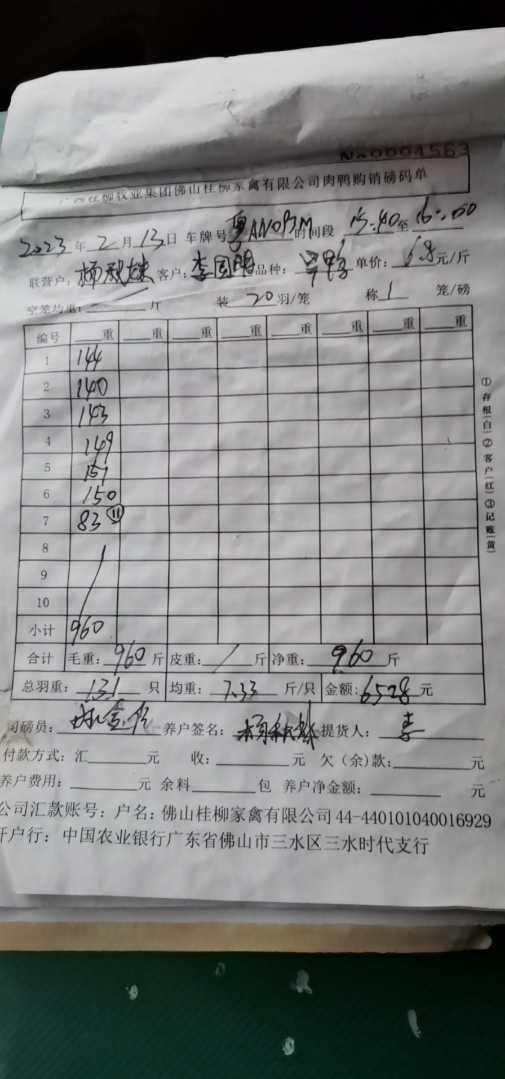 No 0004563
广西桂柳牧业集团佛山桂柳家禽有限公司肉鸭购销磅码单
2023 年 2 月 13 日 车牌号 时间段 15:40 至 16:00
联营户: 客户: 李国明 品种: 单价: 6.8 元/斤
空笼均重: 斤 装 20 羽/笼 称 1 笼/磅
编号 重 重 重 重 重 重 重 重
1 144
2 140
3 143
4 149
5 151
6 150
7 83 ⑪
8
9
10
小计 960
合计 毛重: 960 斤 皮重: / 斤 净重: 960 斤
总羽重: 131 只 均重: 7.33 斤/只 金额: 6528 元
司磅员: 养户签名: 提货人: 李
付款方式: 汇 元 收: 元 欠(余)款: 元
养户费用: 元 余料 包 养户净金额: 元
公司汇款账号: 户名: 佛山桂柳家禽有限公司 44-440101040016929
开户行: 中国农业银行广东省佛山市三水区三水时代支行
①存根(白)②客户(红)③记账(黄)